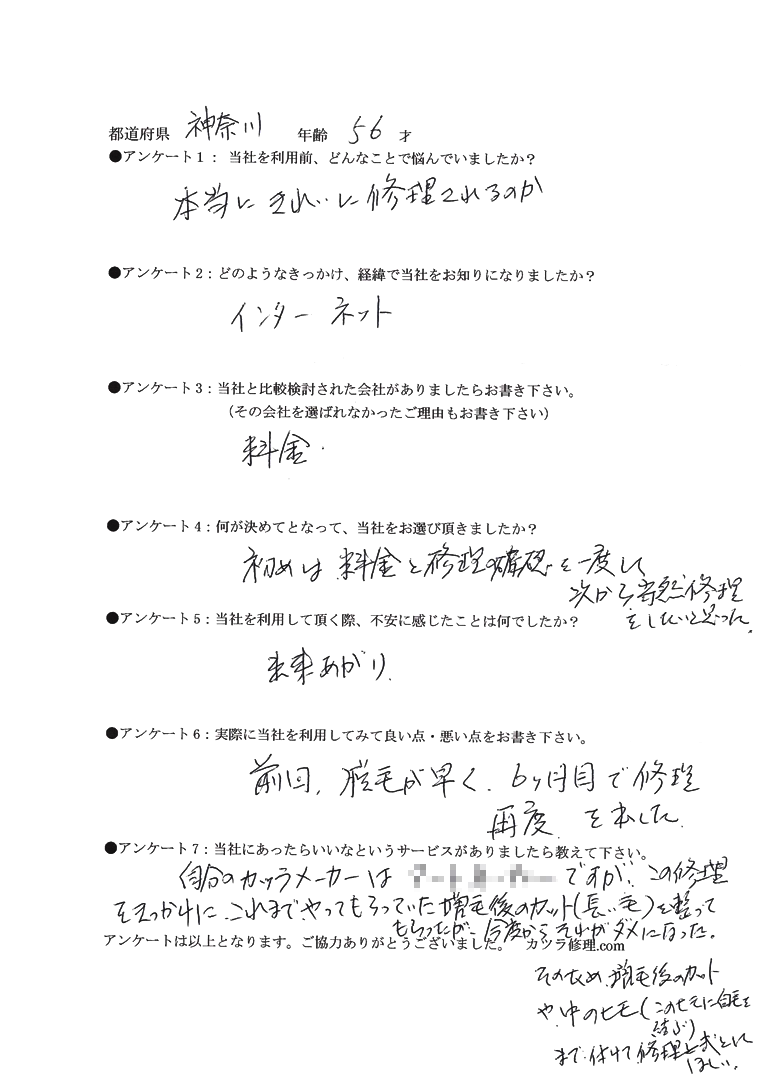 都道府県 神奈川 年齢 56 才
●アンケート1：当社を利用前、どんなことで悩んでいましたか？
本当にきれいに修理されるのか
●アンケート2：どのようなきっかけ、経緯で当社をお知りになりましたか？
インターネット
●アンケート3：当社と比較検討された会社がありましたらお書き下さい。
（その会社を選ばれなかったご理由もお書き下さい）
料金.
●アンケート4：何が決めてとなって、当社をお選び頂きましたか？
初めは料金と修理の確認を一度して
次から当然修理
をしたいと思った。
●アンケート5：当社を利用して頂く際、不安に感じたことは何でしたか？
出来あがり.
●アンケート6：実際に当社を利用してみて良い点・悪い点をお書き下さい。
前回、脱毛が早く、6ヶ月目で修理
再度 を出した.
●アンケート7：当社にあったらいいなというサービスがありましたら教えて下さい。
自分のカツラメーカーは ですが、この修理
をきっかけに、これまでやってもらっていた増毛後のカット(長い毛)を整って
もらったが、今度からそれがダメになった。
アンケートは以上となります。ご協力ありがとうございました。 カツラ修理.com
そのため、増毛後のカット
や、中のヒモ(このヒモに自毛を
結ぶ)
まで付けて修理 ほしい.